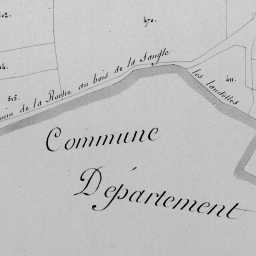 470.
411.
515.
de la Roche au bois de la Sangle
les landelles
Commune
Département